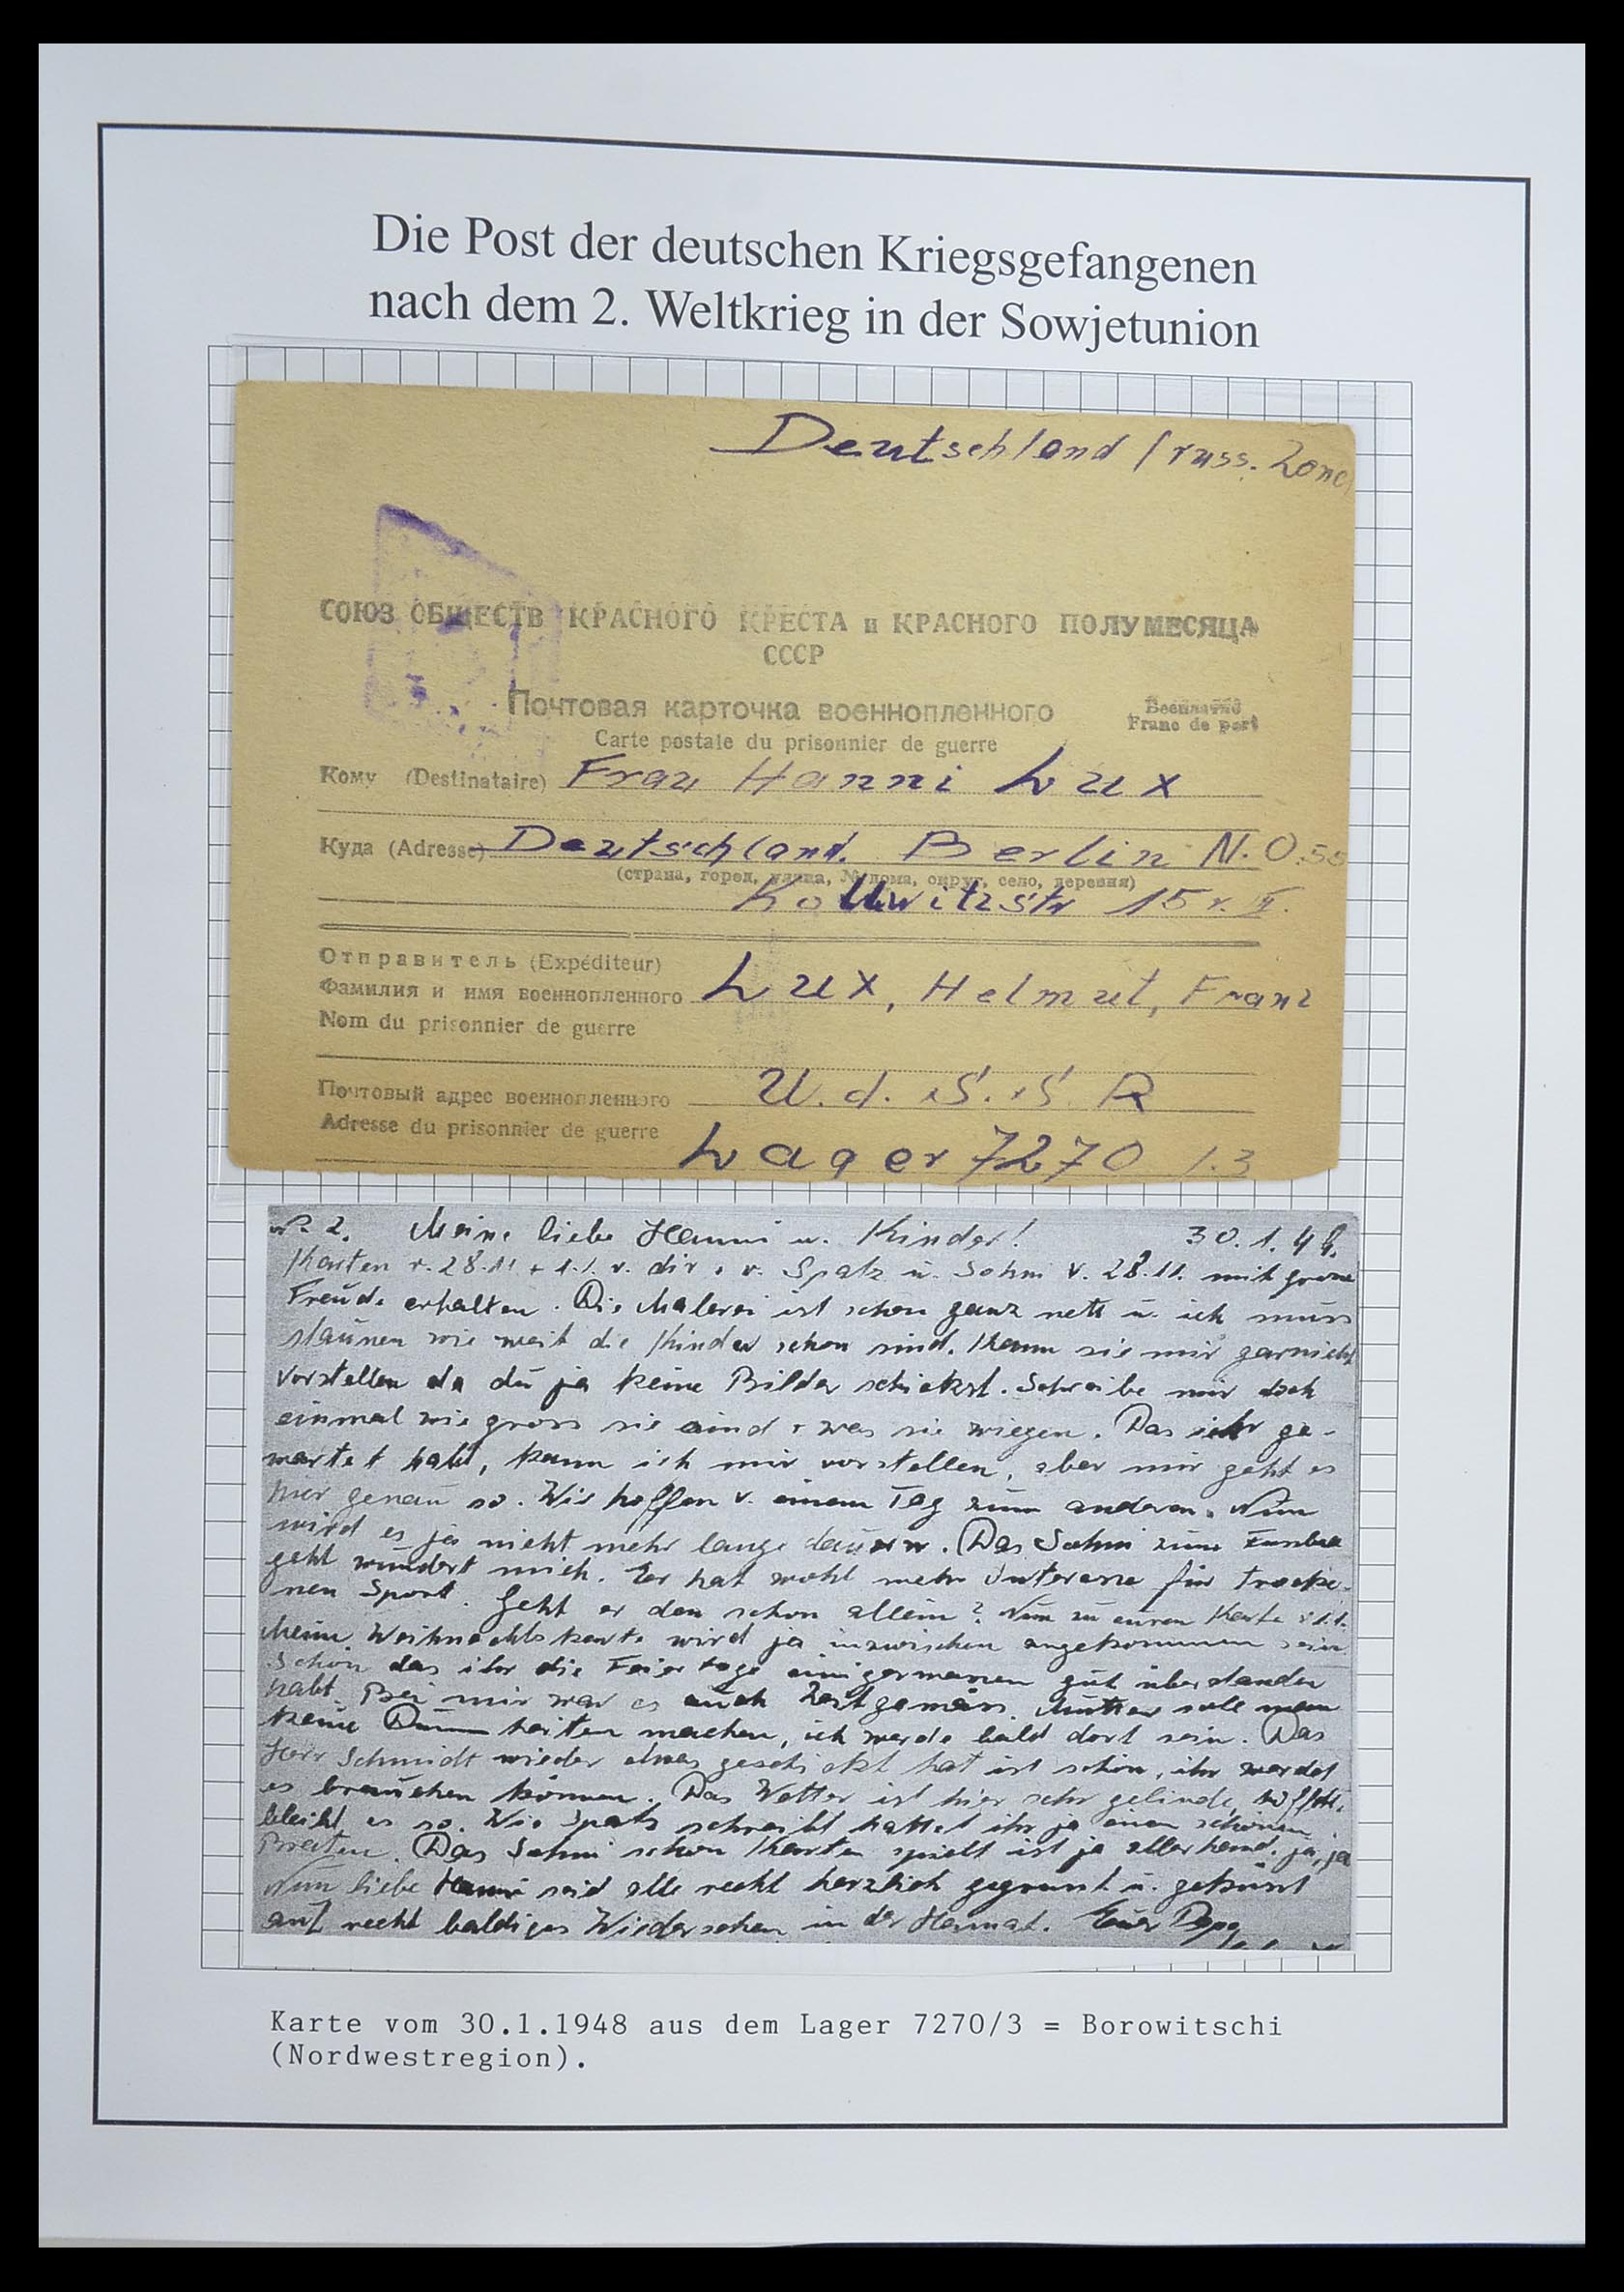 Die Post der deutschen Kriegsgefangenen
nach dem 2. Weltkrieg in der Sowjetunion
Deutschland (russ. Zone)
СОЮЗ ОБЩЕСТВ КРАСНОГО КРЕСТА и КРАСНОГО ПОЛУМЕСЯЦА
СССР
Почтовая карточка военнопленного
Бесплатно
Carte postale du prisonnier de guerre
Franc de port
Кому (Destinataire) Frau Hanni Lux
Куда (Adresse) Deutschland. Berlin N.O.55
(страна, город, улица, № дома, округ, село, деревня)
Kollwitzstr 15 v. II.
Отправитель (Expéditeur)
Фамилия и имя военнопленного Lux, Helmut, Franz
Nom du prisonnier de guerre
Почтовый адрес военнопленного U.d.S.S.R
Adresse du prisonnier de guerre
Lager 7270 /.3
Nr. 2. Meine liebe Hanni u. Kinder! 30.1.48.
Karten v. 28.11 + 1.1. v. dir + v. Spatz u. Sohni v. 28.11. mit grosse
Freude erhalten. Die Malerei ist schon ganz nett u. ich muss
staunen wie weit die Kinder schon sind. Kann sie mir garnicht
vorstellen da du ja keine Bilder schickst. Schreibe mir doch
einmal wie gross sie sind + was sie wiegen. Das ihr ge-
wartet habt, kann ich mir vorstellen, aber mir geht es
hier genau so. Wir hoffen v. einem Tag zum anderen. Nun
wird es ja nicht mehr lange dauern. Das Sohni zum
geht wundert mich. Er hat wohl mehr Interesse für trocke-
nen Sport. Geht er den schon allein? Nun zu euren Karte v 1.1.
Meine Weihnachtskarte wird ja inzwischen angekommen sein
Schön das ihr die Feiertage einigermassen gut überstanden
habt. Bei mir war es auch Zeitgemäss. Mutter soll man
keine Dummheiten machen, ich werde bald dort sein. Das
Herr Schmidt wieder etwas geschickt hat ist schön, ihr werdet
es brauchen können. Das Wetter ist hier sehr gelinde, hoffentl.
bleibt es so. Wie Spatz schreibt hattet ihr ja einen schönen
Braten. Das Sohni schon Karten spielt ist ja allerhand. ja, ja
Nun liebe Hanni seid alle recht herzlich gegrüsst u. geküsst
auf recht baldiges Wiedersehen in der Heimat. Euer Papa
Karte vom 30.1.1948 aus dem Lager 7270/3 = Borowitschi
(Nordwestregion).